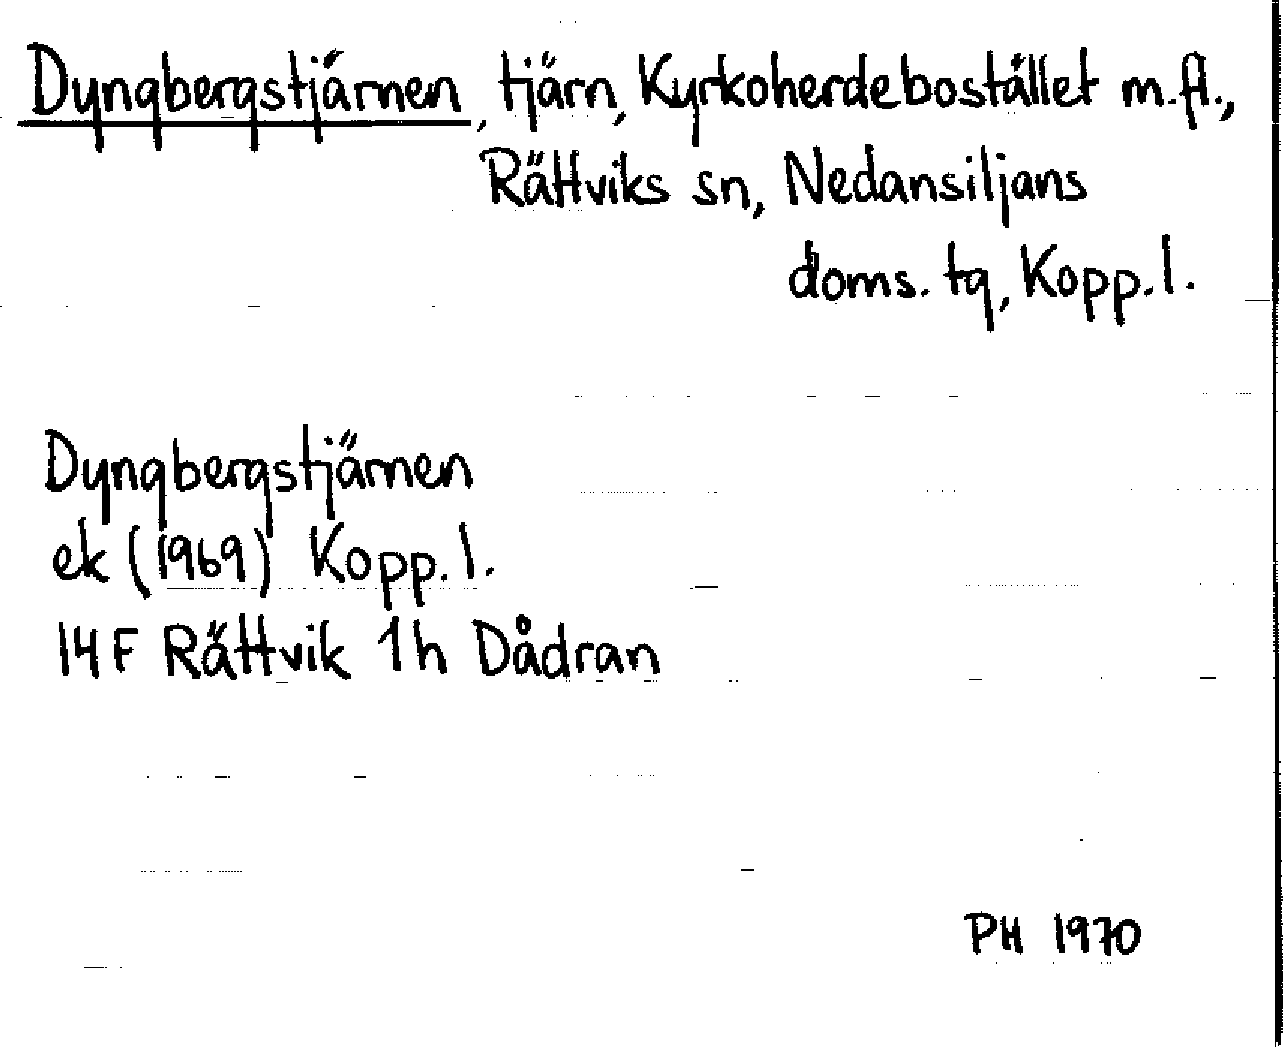 Dyngbergstjärnen, tjärn, Kyrkoherdebostället m.fl.,
Rättviks sn, Nedansiljans
doms. tg, Kopp. l.
Dyngbergstjärnen
ek (1969) Kopp. l.
14 F Rättvik 1h Dådran
PH 1970